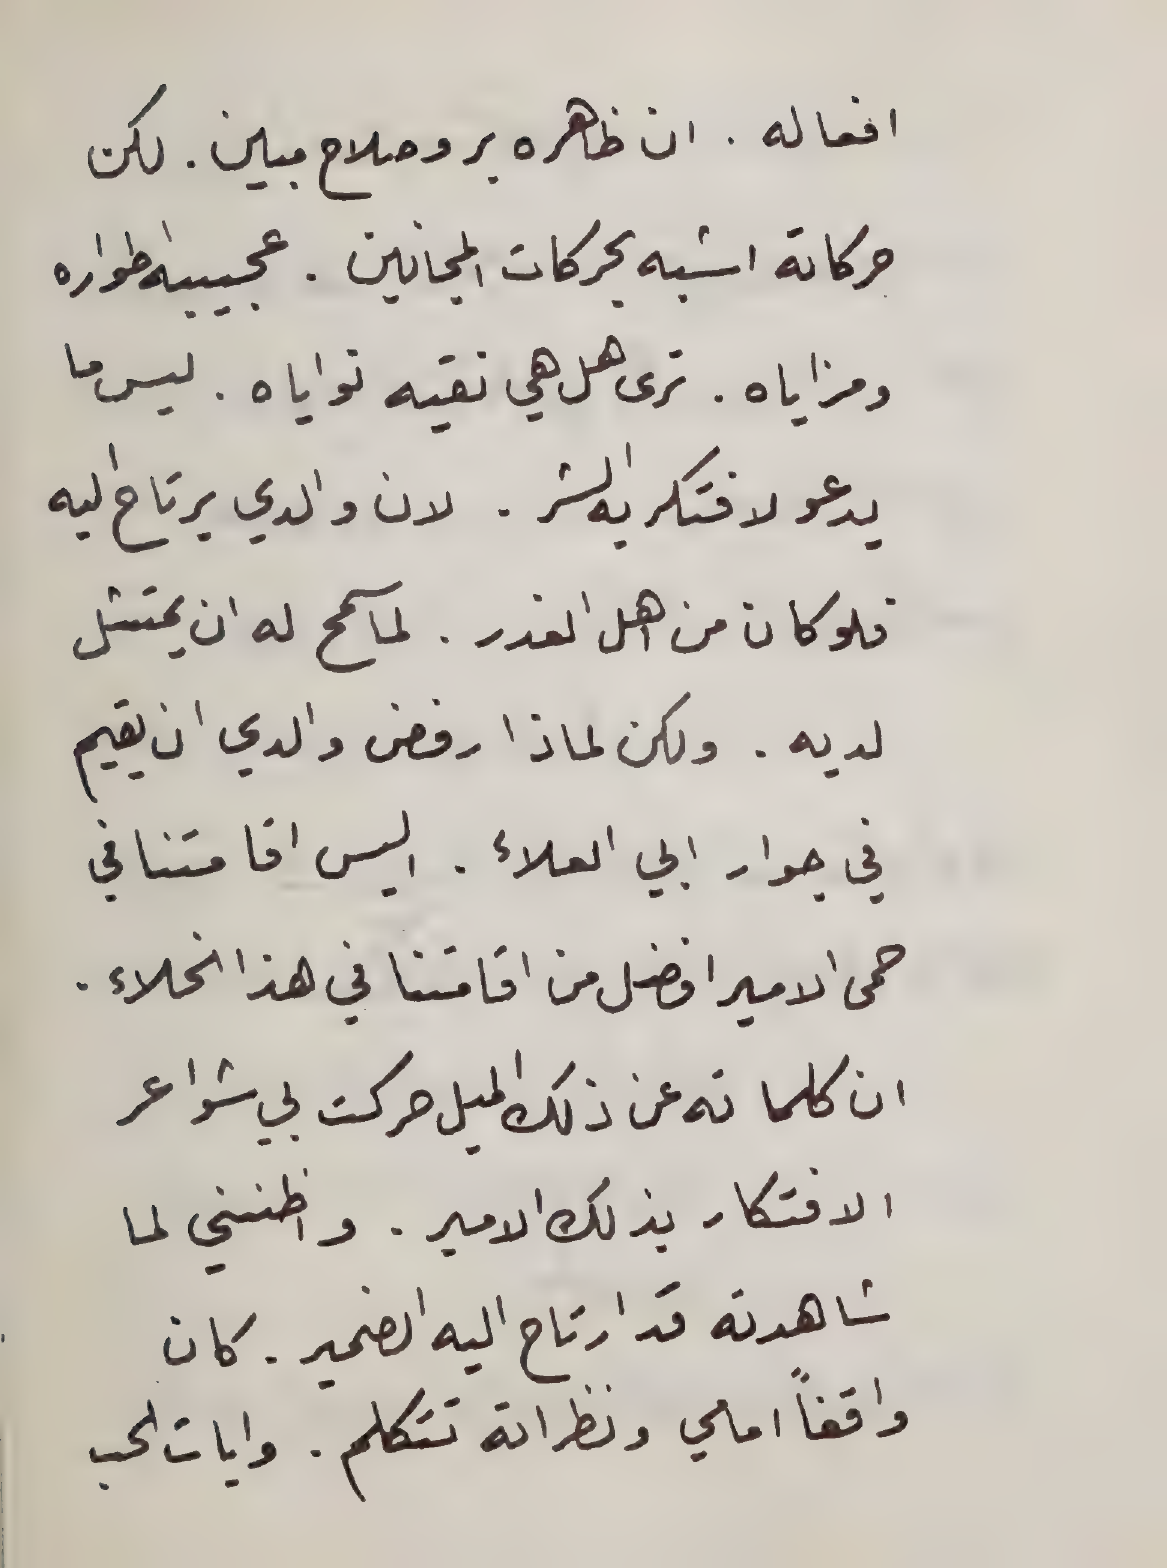 افعاله . ان ظاهره بر وصلاح مبين . لكن
حركاته اشبه بحركات المجانين . عجيبه اطواره
ومزاياه . ترى هل هي نقيه نواياه . ليس ما
يدعو لافتكر به الشر . لان والدي يرتاح اليه
فلو كان من اهل الغدر . لما سمح له ان يمتثل
لديه . ولكن لماذا رفض والدي ان يقيم
في جوار ابي العلاء . اليس اقامتنا في
حمى الامير افضل من اقامتنا في هذا الخلاء .
ان كلماته عن ذلك الميل حركت بي شواعر
الافتكار بذلك الامير . واظنني لما
شاهدته قد ارتاح اليه الضمير . كان
واقفاً امامي ونظراته تتكلم . وايات الحب